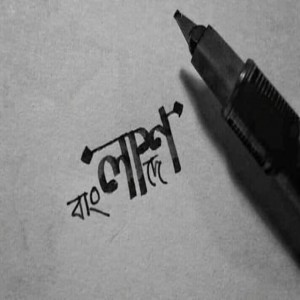 বাংলাদেশ